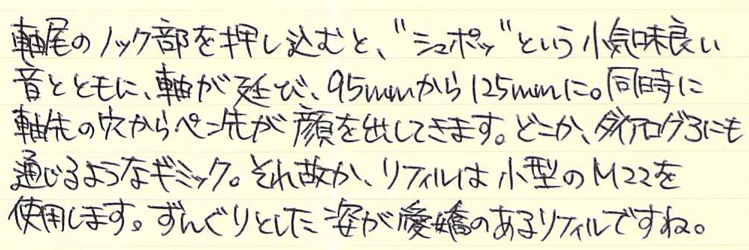 軸尾のノック部を押し込むと、"シュポッ"という小気味良い
音とともに、軸が延び、95mmから125mmに。同時に
軸先の穴からペン先が顔を出してきます。どこか、ダイアログ3にも
通じるようなギミック。それ故か、リフィルは小型のM22を
使用します。ずんぐりとした姿が愛嬌のあるリフィルですね。